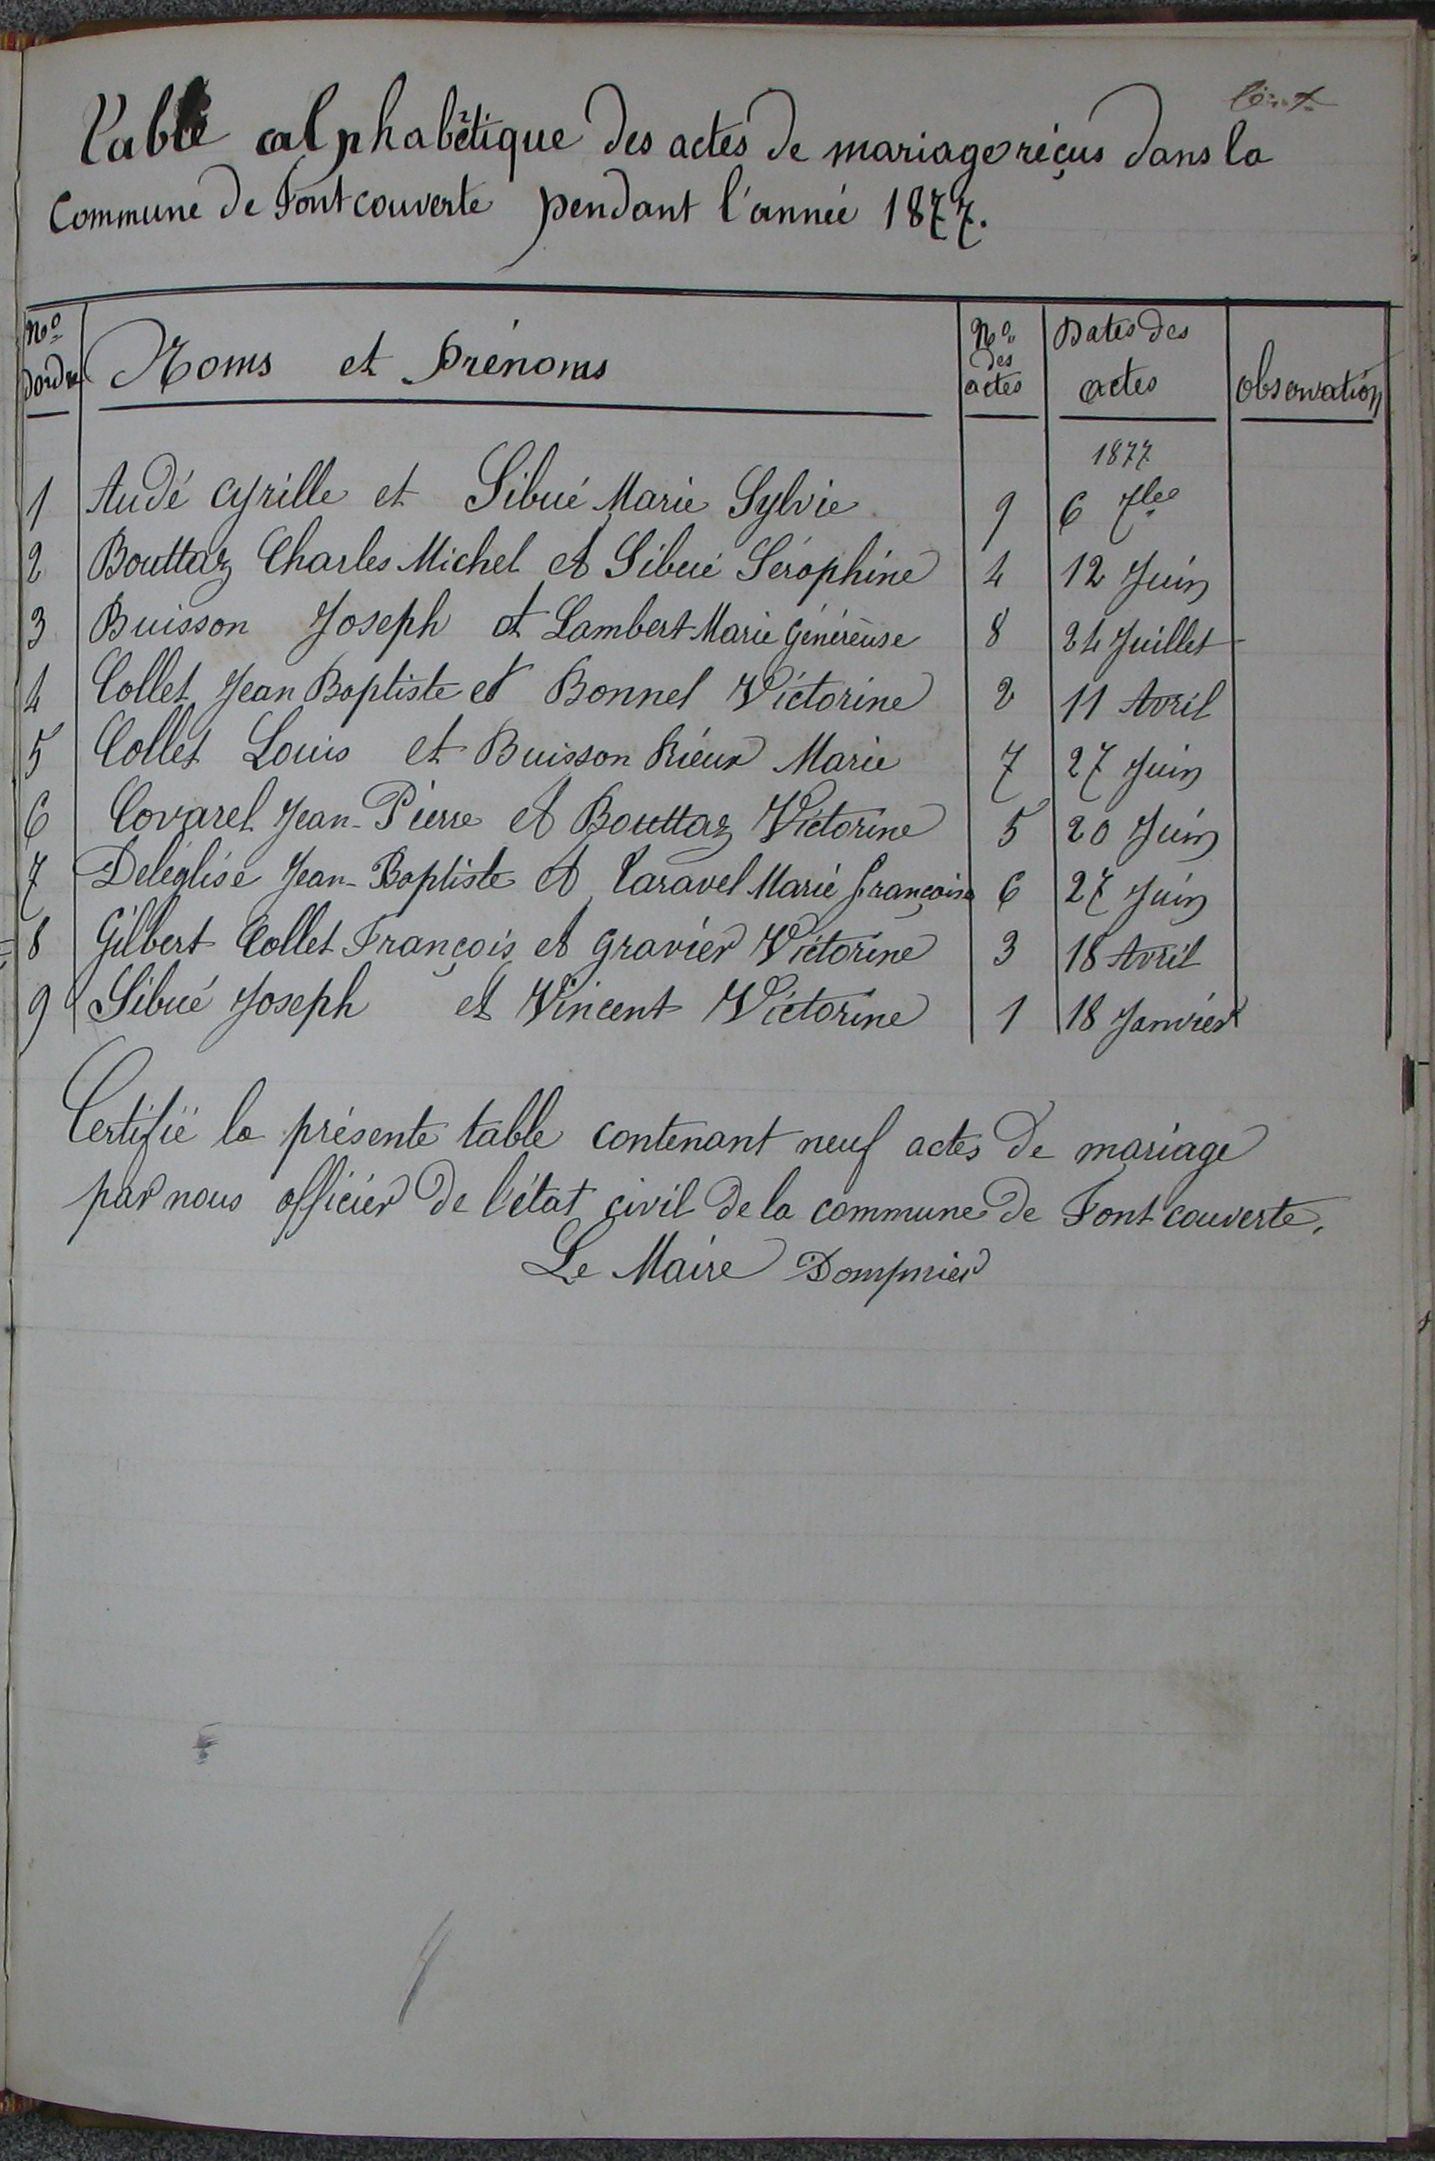 Table alphabétique des actes de mariage reçus dans la
Commune de Fontcouverte pendant l'année 1877.
Nº d'ordre | Noms et Prénoms | Nº des actes | Dates des actes | Observation
1877
1 Audé Cyrille et Sibué Marie Sylvie 9 6 7bre
2 Bouttaz Charles Michel et Sibué Séraphine 4 12 Juin
3 Buisson Joseph et Lambert Marie Généreuse 8 24 Juillet
4 Collet Jean Baptiste et Bonnel Victorine 2 11 Avril
5 Collet Louis et Buisson Rieux Marie 7 27 Juin
6 Covarel Jean-Pierre et Bouttaz Victorine 5 20 Juin
7 Deléglise Jean-Baptiste et Taravel Marie Françoise 6 27 Juin
8 Gilbert Collet François et Gravier Victorine 3 18 Avril
9 Sibué Joseph et Vincent Victorine 1 18 Janvier
Certifié la présente table contenant neuf actes de mariage
par nous officier de l'état civil de la commune de Fontcouverte.
Le Maire Dompnier